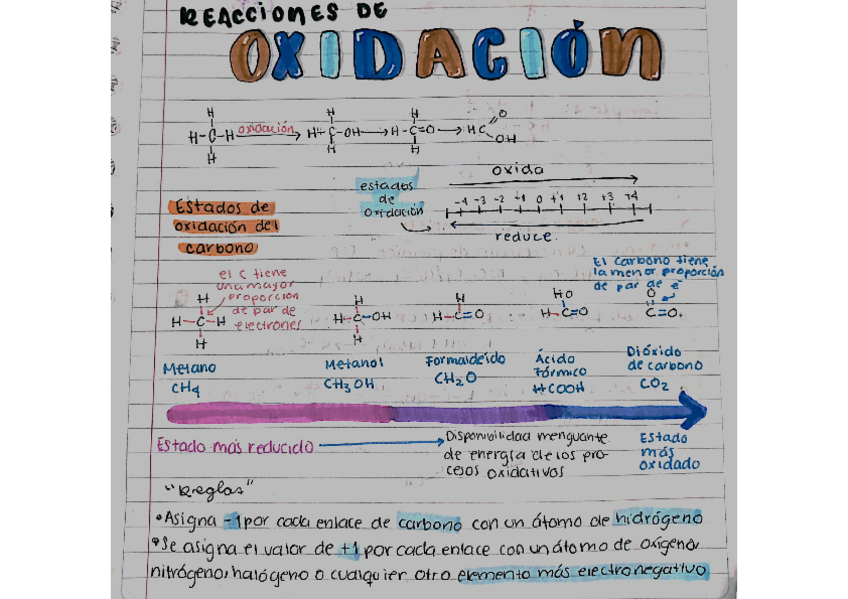 REACCIONES DE
OXIDACIÓN
H H H
H-C-H oxidación H-C-OH H-C=O HC O
H H H OH
oxida
estados
de
oxidación
-4 -3 -2 -1 0 +1 +2 +3 +4
reduce.
Estados de
oxidación del
carbono
El carbono tiene
la menor proporción
de par de e-
el C tiene
una mayor
proporción
de par de
electrones
H H H HO O
H-C-H H-C-OH H-C=O H-C=O C=O.
H H
Metano Metanol Formaldeído Ácido fórmico Dióxido de carbono
CH4 CH3OH CH2O HCOOH CO2
Estado más reducido
Disponibilidad menguante
de energía de los pro-
cesos oxidativos
Estado
más
oxidado
"Reglas"
•Asigna -1 por cada enlace de carbono con un átomo de hidrógeno
•Se asigna el valor de +1 por cada enlace con un átomo de oxígeno
nitrógeno, halógeno o cualquier otro elemento más electronegativo